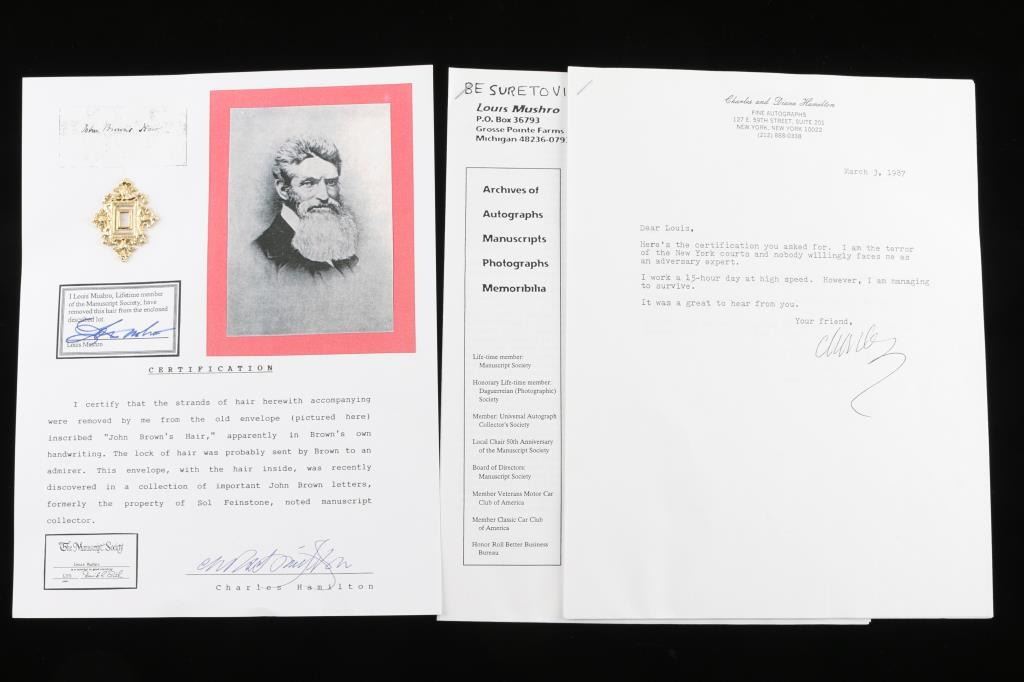 John Brown's Hair
I Louis Mushro, Lifetime member
of the Manuscript Society, have
removed this hair from the enclosed
described lot.
Louis Mushro
CERTIFICATION
I certify that the strands of hair herewith accompanying
were removed by me from the old envelope (pictured here)
inscribed "John Brown's Hair," apparently in Brown's own
handwriting. The lock of hair was probably sent by Brown to an
admirer. This envelope, with the hair inside, was recently
discovered in a collection of important John Brown letters,
formerly the property of Sol Feinstone, noted manuscript
collector.
The Manuscript Society
Louis Mushro
Charles Hamilton
BE SURE TO VI
Louis Mushro
P.O. Box 36793
Grosse Pointe Farms
Michigan 48236-079
Archives of
Autographs
Manuscripts
Photographs
Memoribilia
Life-time member:
Manuscript Society
Honorary Life-time member:
Daguerreian (Photographic)
Society
Member: Universal Autograph
Collector's Society
Local Chair 50th Anniversary
of the Manuscript Society
Board of Directors:
Manuscript Society
Member Veterans Motor Car
Club of America
Member Classic Car Club
of America
Honor Roll Better Business
Bureau
Charles and Diane Hamilton
FINE AUTOGRAPHS
127 E. 59TH STREET, SUITE 201
NEW YORK, NEW YORK 10022
(212) 888-0338
March 3, 1987
Dear Louis,
Here's the certification you asked for. I am the terror
of the New York courts and nobody willingly faces me as
an adversary expert.
I work a 15-hour day at high speed. However, I am managing
to survive.
It was a great to hear from you.
Your friend,
Charley